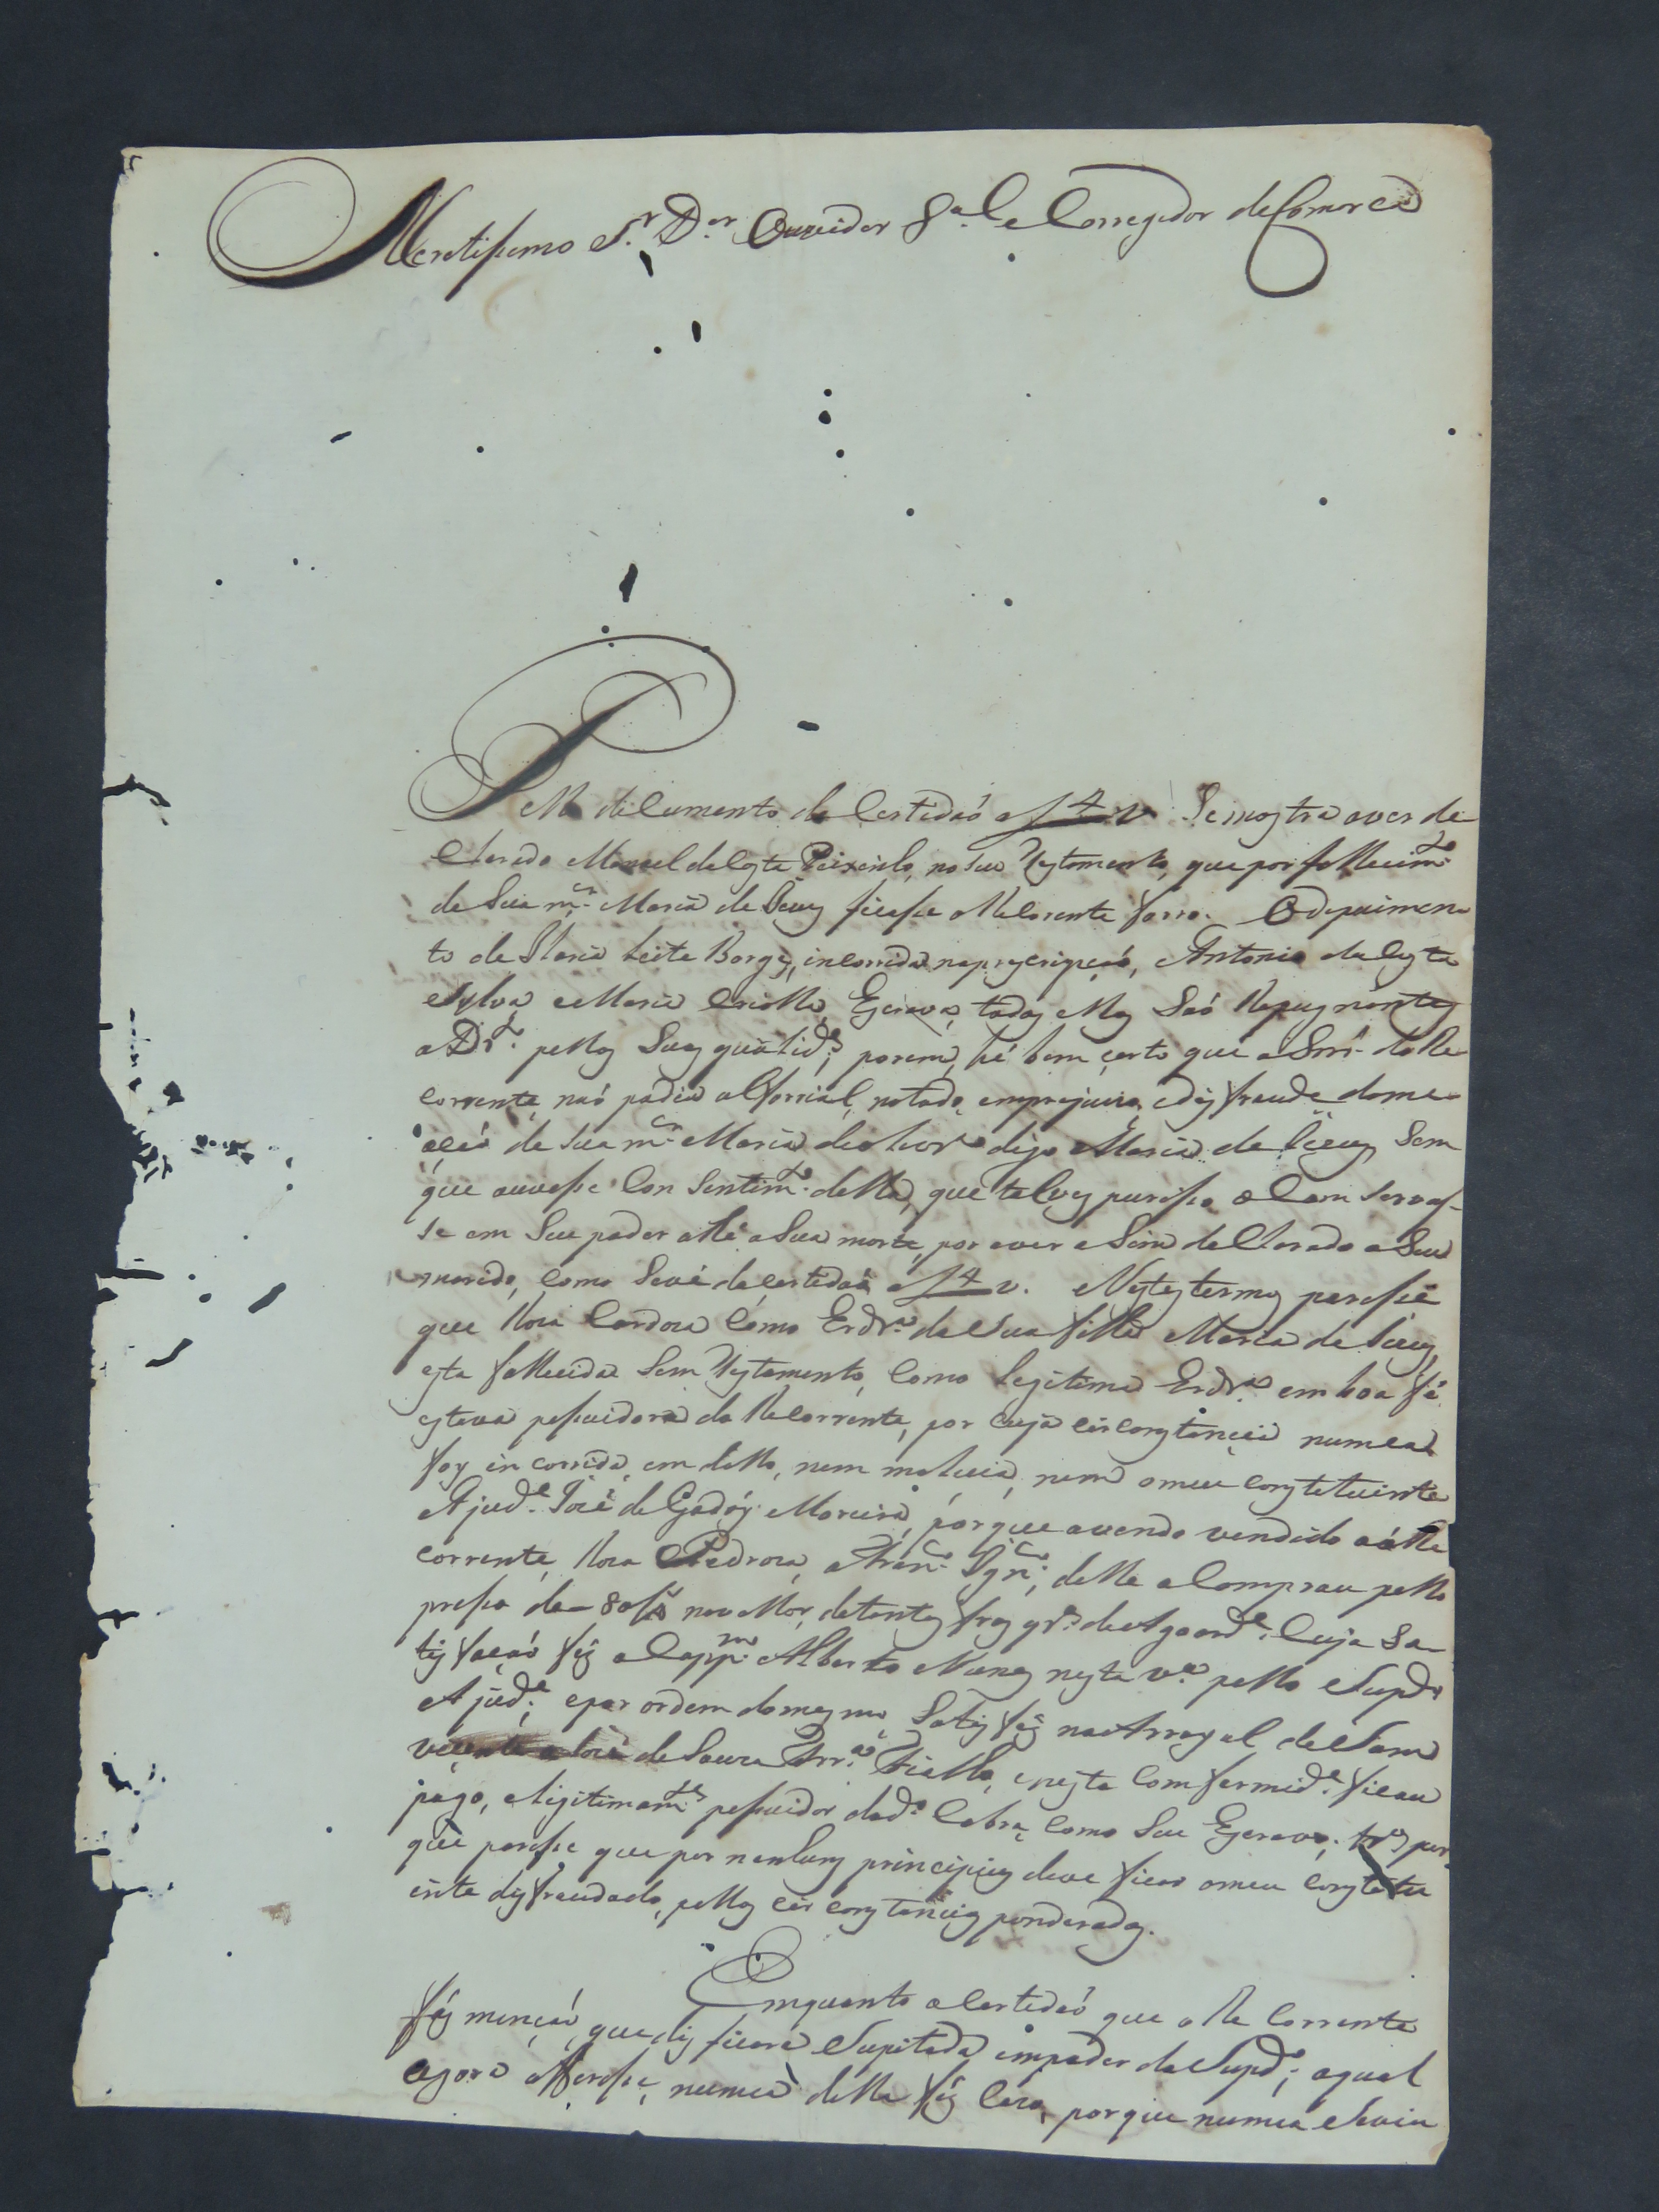 Meretissimo S.r D.or Ouvidor g.al e Corregedor da Comarca
Pello dicumento da Certidaó a f 4 v Se mostra aver de
clarado Manoel da Costa no Seu Testamento, que por fallecim.to
de Sua m.er Maria de ficasse a Recorente forra. O depuimen
to de Maria Leite Borges, incorrida na prescripçaó, Antonio da Costa
e Sylva, e Maria Criolla, Escrava, todas ellas Saó Repugnantes
a Dr.to pellas Suas qualid.es, porem, hé bem certo que o Snr. da Re
corrente, naó podia alforrial, em prejuizo, e disfraude da me
açaó de Sua m.er Maria digo Maria de Sem
que ouvesse Con Sentim.to della, que talves a Com servas
se em Seu poder athé a Sua morte, por aver aSim declarado a Seu
marido, Como Se vé da certidaó a f 4 v. Nestes termos paresse
que Roza Cardoza Como Erdr.a da Sua filha Maria de
esta fallecida Sem Testamento, Como Legitima Erdr.a em boa fé
estava pessuidora da Recorrente, por cuja circonstançia numca
foy in corrida em dollo, nem maliçia, nem o meu constetuinte
Ajud.e Jozé de Godóy Moreira, porque avendo vendido a Re
corrente, Roza Pedroza, a Fran.co Ign.cio, delle a Comprou pello
presso de 80$ no vallor de tantas fras q.s de Agoard.e, Cuja Sa
tisfaçaó fes a Capp.m Alberto Nunes nesta v.a pello Supd.o
Ajud.e, e por ordem do mesmo, Satisfes no Arrayal de Sam
Vicente a Jozé de Souza e nesta Comformid.e ficou
pago, e legitimam.te pessuidor da d.a Cabra, Como Sua Escrava, por
que paresse que por nenhuns principios deve ficar o meu constetu
inte disfraudado, pellas circonstançias ponderadas.
Emquanto a Certidaó que a Recorrente
fés mençaó, que dis ficara Supitada em poder do Supd.o, a qual
agora offeresse, numca della fés Cazo, porque numca